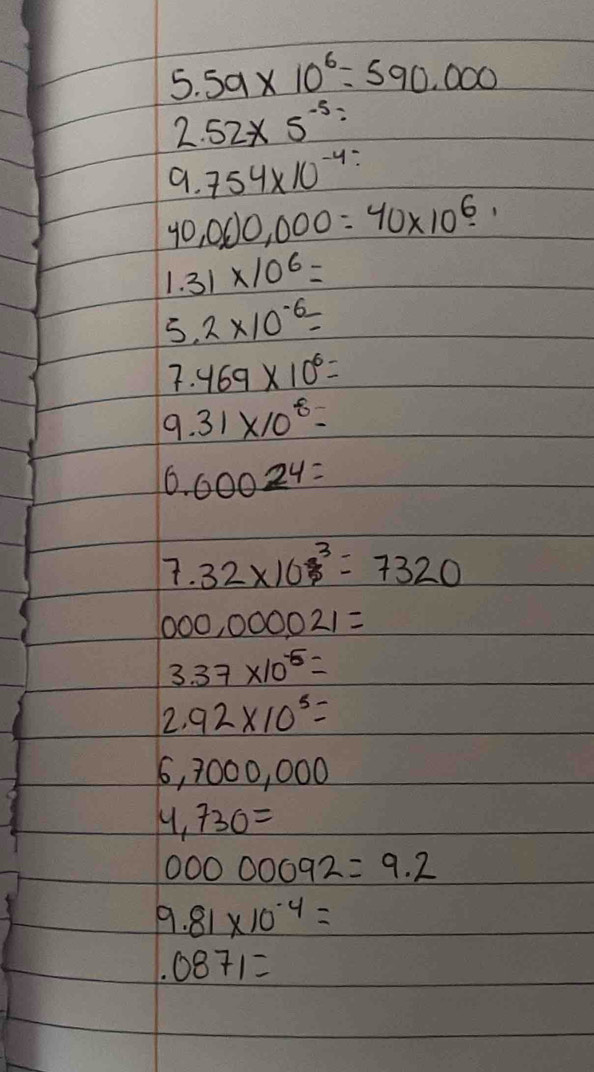 5.59 × 10⁶= 590.000
2.52× 5⁻⁵=
9.754×10⁻⁴=
40,000,000= 40×10⁶.
1.31 ×10⁶=
5.2 ×10⁻⁶=
7.469 ×10⁶=
9.31 ×10⁸=
0.00024=
7.32×10³= 7320
000,000021=
3.37 ×10⁻⁵=
2.92×10⁵=
6,7000,000
4,730=
000 00092= 9.2
9.81 ×10⁻⁴=
.0871=